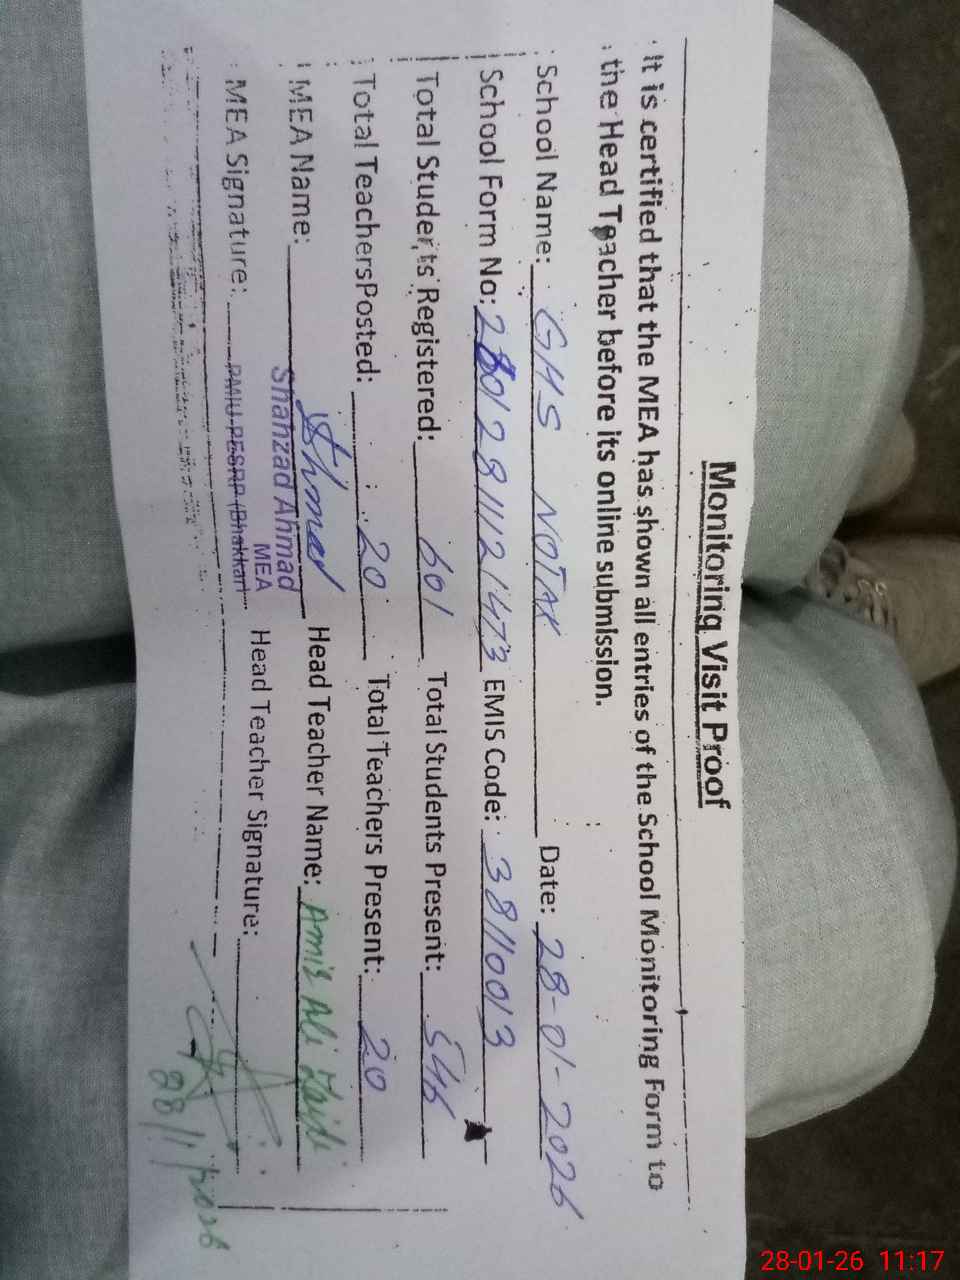 Monitoring Visit Proof
It is certified that the MEA has shown all entries of the School Monitoring Form to
the Head Teacher before its online submission.
School Name: GHS NOTAK Date: 28-01-2026
School Form No: EMIS Code: 38110013
Total Students Registered: 601 Total Students Present: 546
Total Teachers Posted: 20 Total Teachers Present: 20
MEA Name: Head Teacher Name: Ali
Shahzad Ahmad
MEA
MEA Signature: PMIU-PESRP (Bhakkar) Head Teacher Signature:
28-01-26 11:17